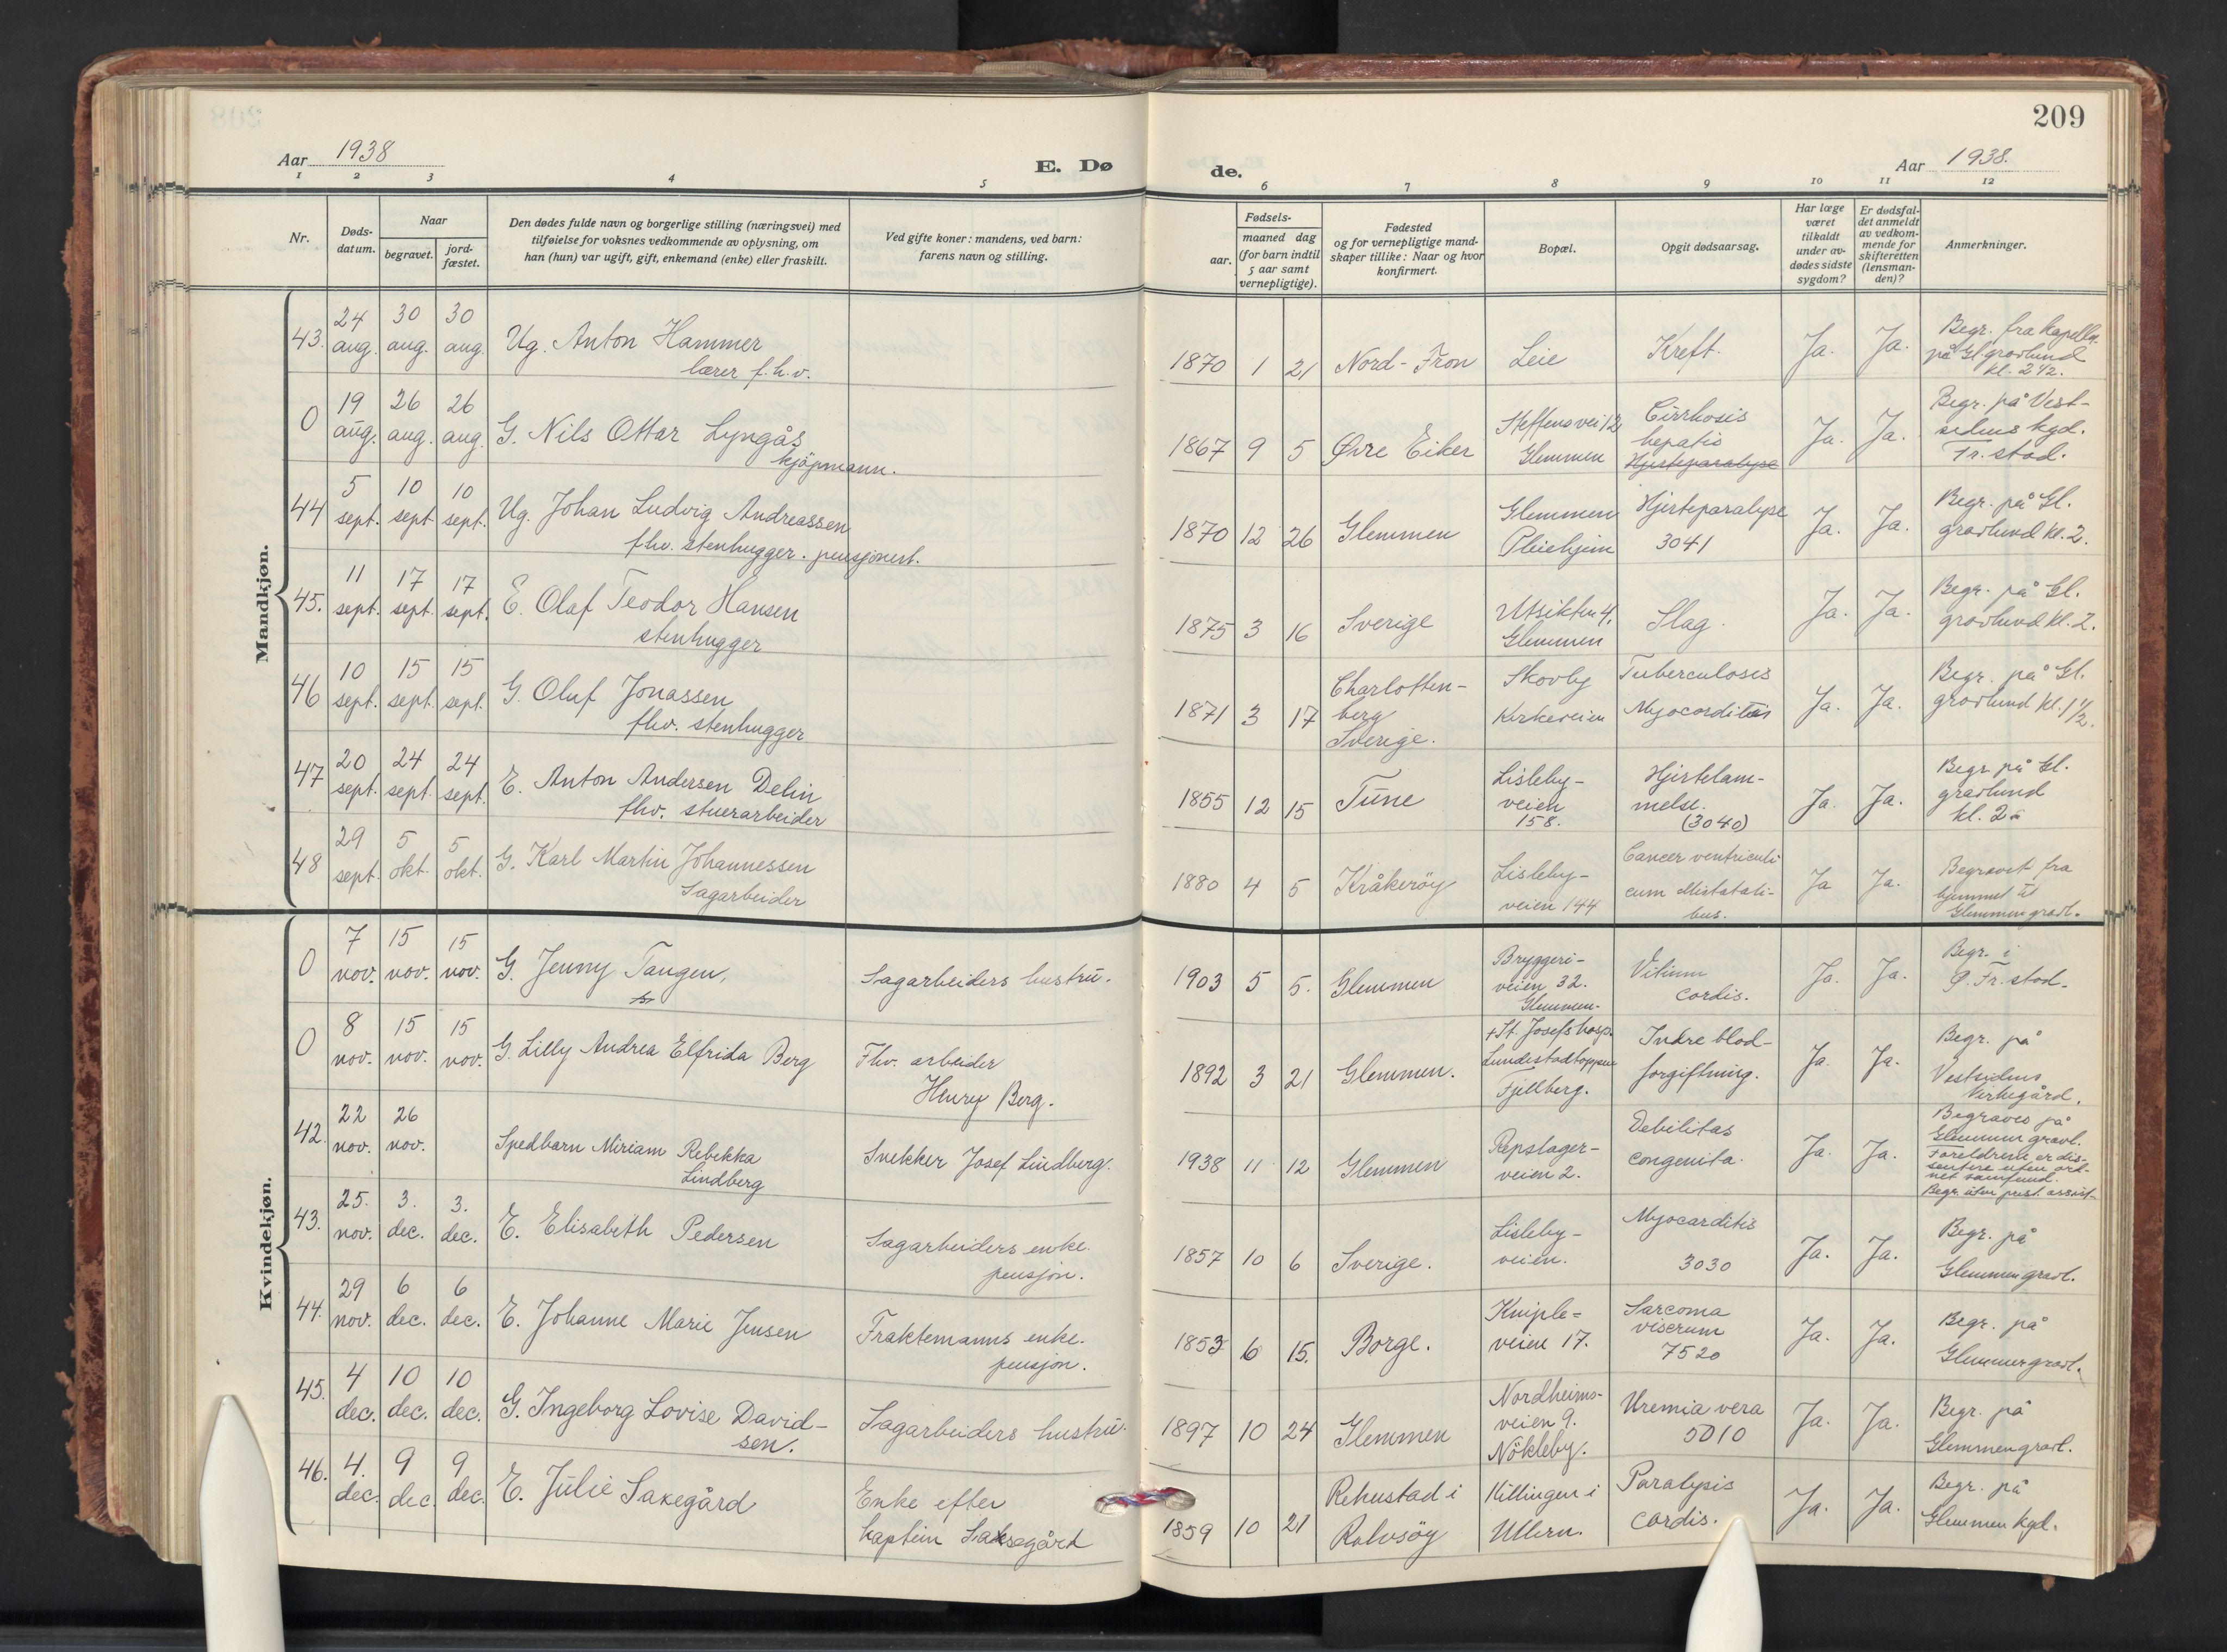 209
Aar 1938
E. Dø
de.
Aar 1938.
1 2 3 4 5 6 7 8 9 10 11 12
Nr.
Døds-
datum.
Naar
begravet.
jord-
fæstet.
Den dødes fulde navn og borgerlige stilling (næringsvei) med
tilføielse for voksnes vedkommende av oplysning, om
han (hun) var ugift, gift, enkemand (enke) eller fraskilt.
Ved gifte koner: mandens, ved barn:
farens navn og stilling.
Fødsels-
aar.
maaned dag
(for barn indtil
5 aar samt
vernepligtige).
Fødested
og for vernepligtige mand-
skaper tillike: Naar og hvor
konfirmert.
Bopæl.
Opgit dødsaarsag.
Har læge
været
tilkaldt
under av-
dødes sidste
sygdom?
Er dødsfal-
det anmeldt
av vedkom-
mende for
skifteretten
(lensman-
den)?
Anmerkninger.
Mandkjøn.
43. 24 aug. 30 aug. 30 aug. Ug. Anton Hammer
lærer f.h.v.
1870 1 21 Nord-Fron Leie Kreft. Ja. Ja. Begr. fra kapellet
på Gl. gravlund
kl. 2½.
0 19 aug. 26 aug. 26 aug. G. Nils Ottar Lyngås
kjöpmann.
1867 9 5 Øvre Eiker Steffensvei 12
Glemmen
Cirrhosis
hepatis
Hjerteparalyse
Ja. Ja. Begr. på Vest-
sidens kgd.
Fr.stad.
44 5 sept. 10 sept. 10 sept. Ug. Johan Ludvig Andreassen
fhv. stenhugger. pensjonert.
1870 12 26 Glemmen Glemmen
Pleiehjem
Hjerteparalyse
3041
Ja. Ja. Begr. på Gl.
gravlund kl. 2.
45. 11 sept. 17 sept. 17 sept. E. Olaf Teodor Hansen
stenhugger
1875 3 16 Sverige Utsikten 4.
Glemmen
Slag. Ja. Ja. Begr. på Gl.
gravlund kl. 2.
46 10 sept. 15 sept. 15 sept. G. Oluf Jonassen
fhv. stenhugger
1871 3 17 Charlotten-
berg
Sverige.
Skovby
Kirkeveien
Tuberculosis
Myocarditis
Ja. Ja. Begr. på Gl.
gravlund kl. 1½.
47 20 sept. 24 sept. 24 sept. E. Anton Andersen Delin
fhv. stuerarbeider
1855 12 15 Tune Lisleby-
veien
158.
Hjertelam-
melse.
(3040)
Ja. Ja. Begr. på Gl.
gravlund
kl. 2
48 29 sept. 5 okt. 5 okt. G. Karl Martin Johannessen
Sagarbeider
1880 4 5 Kråkeröy Lisleby-
veien 144
Cancer ventriculi
cum Mistatati-
bus.
Ja Ja. Begravet fra
hjemmet til
Glemmen gravl.
Kvindekjøn.
0 7 nov. 15 nov. 15 nov. G. Jenny Tangen, Sagarbeiders hustru.
1903 5 5. Glemmen Bryggeri-
veien 32.
Glemmen.
Vitium
cordis.
Ja. Ja. Begr. i
Ø. Fr.stad.
0 8 nov. 15 nov. 15 nov. G. Lilly Andrea Elfrida Berg Fhv. arbeider
Henry Berg.
1892 3 21 Glemmen. + St. Josefs hosp.
Lundestadtoppen
Fjellberg.
Indre blod-
forgiftning.
Ja. Ja. Begr. på
Vestsidens
Kirkegård.
42. 22 nov. 26 nov. Spedbarn Miriam Rebekka
Lindberg
Snekker Josef Lindberg.
1938 11 12 Glemmen Repslager-
veien 2.
Debilitas
congenita.
Ja. Ja. Begraves på
Glemmen gravl.
Foreldrene er dis-
sentere uten ord-
net samfund.
Begr. uten prest. assist.
43. 25. nov. 3. dec. 3. dec. E. Elisabeth Pedersen Sagarbeiders enke.
pensjon.
1857 10 6 Sverige. Lisleby-
veien.
Myocarditis
3030
Ja. Ja. Begr. på
Glemmen gravl.
44. 29 nov. 6 dec. 6 dec. E. Johanne Marie Jensen Fraktemanns enke.
pensjon.
1853 6 15. Borge. Kniple-
veien 17.
Sarcoma
viscerum
7520
Ja. Ja. Begr. på
Glemmen gravl.
45. 4 dec. 10 dec. 10 dec. G. Ingeborg Lovise David-
sen.
Sagarbeiders hustru.
1897 10 24 Glemmen Nordheims-
veien 9.
Nökleby.
Uremia vera
5010
Ja. Ja. Begr. på
Glemmen gravl.
46. 4. dec. 9 dec. 9 dec. E. Julie Saxegård Enke efter
kaptein Saksegård
1859 10 21 Rehustad i
Rolvsöy
Killingen i
Ullern.
Paralysis
cordis.
Ja. Ja. Begr. på
Glemmen kgd.